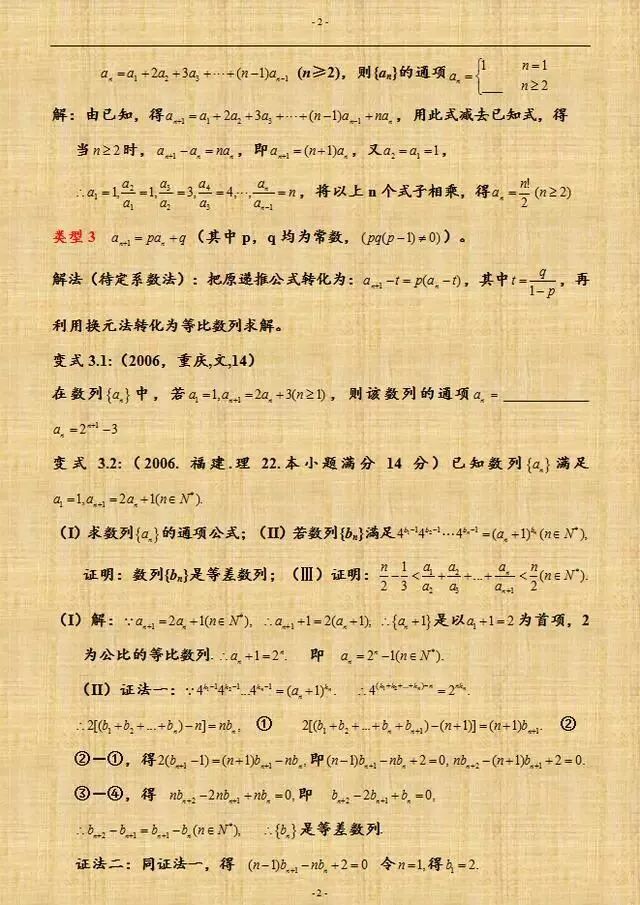 - 2 -
a_n = a_1 + 2a_2 + 3a_3 + ⋯ + (n-1)a_{n-1} (n≥2)，则{a_n}的通项 a_n = { 1 n=1
___ n≥2
解：由已知，得a_{n+1} = a_1 + 2a_2 + 3a_3 + ⋯ + (n-1)a_{n-1} + na_n，用此式减去已知式，得
当n≥2时，a_{n+1} - a_n = na_n，即a_{n+1} = (n+1)a_n，又a_2 = a_1 = 1，
∴a_1 = 1, a_2/a_1 = 1, a_3/a_2 = 3, a_4/a_3 = 4, ⋯, a_n/a_{n-1} = n，将以上n个式子相乘，得a_n = n!/2 (n≥2)
类型3 a_{n+1} = pa_n + q（其中p，q均为常数，(pq(p-1)≠0)）。
解法（待定系数法）：把原递推公式转化为：a_{n+1} - t = p(a_n - t)，其中t = q/(1-p)，再
利用换元法转化为等比数列求解。
变式3.1:（2006，重庆,文,14）
在数列{a_n}中，若a_1 = 1, a_{n+1} = 2a_n + 3(n≥1)，则该数列的通项a_n = ________
a_n = 2^{n+1} - 3
变式3.2:（2006. 福建.理22.本小题满分14分）已知数列{a_n}满足
a_1 = 1, a_{n+1} = 2a_n + 1(n∈N^*).
(I)求数列{a_n}的通项公式；(II)若数列{b_n}满足4^{b_1-1}4^{b_2-1}⋯4^{b_n-1} = (a_n+1)^{b_n}(n∈N^*),
证明：数列{b_n}是等差数列；(Ⅲ)证明：n/2 - 1/3 < a_1/a_2 + a_2/a_3 + ... + a_n/a_{n+1} < n/2 (n∈N^*).
(I)解：∵a_{n+1} = 2a_n + 1(n∈N^*), ∴a_{n+1} + 1 = 2(a_n + 1); ∴{a_n + 1}是以a_1 + 1 = 2为首项，2
为公比的等比数列. ∴a_n + 1 = 2^n. 即 a_n = 2^n - 1(n∈N^*).
(II)证法一：∵4^{k_1-1}4^{k_2-1}...4^{k_n-1} = (a_n+1)^{k_n}. ∴4^{(k_1+k_2+...+k_n)-n} = 2^{nk_n}.
∴2[(b_1 + b_2 + ... + b_n) - n] = nb_n, ① 2[(b_1 + b_2 + ... + b_n + b_{n+1}) - (n+1)] = (n+1)b_{n+1}. ②
②-①，得2(b_{n+1} - 1) = (n+1)b_{n+1} - nb_n, 即(n-1)b_{n+1} - nb_n + 2 = 0, nb_{n+2} - (n+1)b_{n+1} + 2 = 0.
③-④，得 nb_{n+2} - 2nb_{n+1} + nb_n = 0, 即 b_{n+2} - 2b_{n+1} + b_n = 0,
∴b_{n+2} - b_{n+1} = b_{n+1} - b_n(n∈N^*), ∴{b_n}是等差数列.
证法二：同证法一，得 (n-1)b_{n+1} - nb_n + 2 = 0 令n=1,得b_1 = 2.
- 2 -